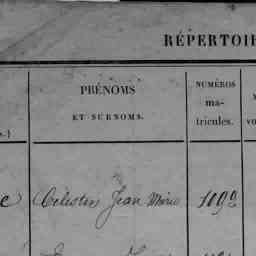 RÉPERTOI
PRÉNOMS
ET SURNOMS.
NUMÉROS
ma-
tricules.
vo
s.)
e Célestin Jean Marie 1092